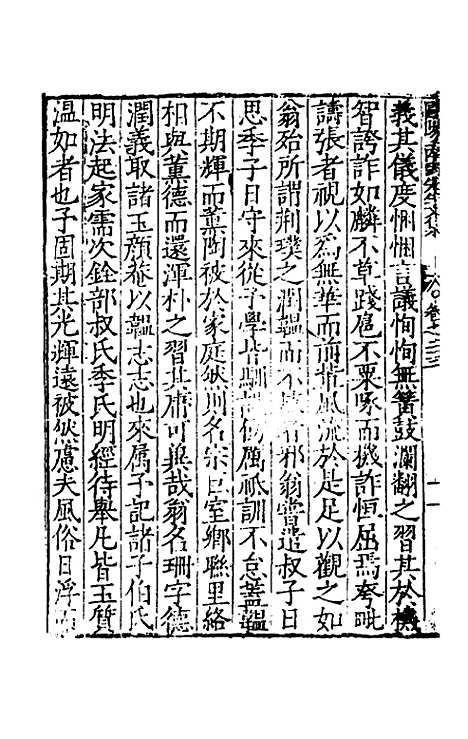 義其儀度悃悃言議恂恂無簧鼓瀾翻之習其於機
智誇詐如麟不草踐鳳不粟啄而機詐恒屈焉彼
譸張者視以為無華而前輩風流於是足以觀之如
翁殆所謂荆璞之潤韞而不者邪翁嘗遣叔子曰
思季子曰守來從予學皆馴飭厲祗訓不怠蓋韞
不期輝而薰陶被於家庭然則名宗巨室鄉聯里絡
相與薰德而還渾朴之習其庸可幾哉翁名珊字德
潤義取諸玉顏菴以韞志志也來屬予記諸子伯氏
明法起家需次銓部叔氏季氏明經待舉凡皆玉質
温如者也予固期其光輝遠被然慮夫風俗日浮